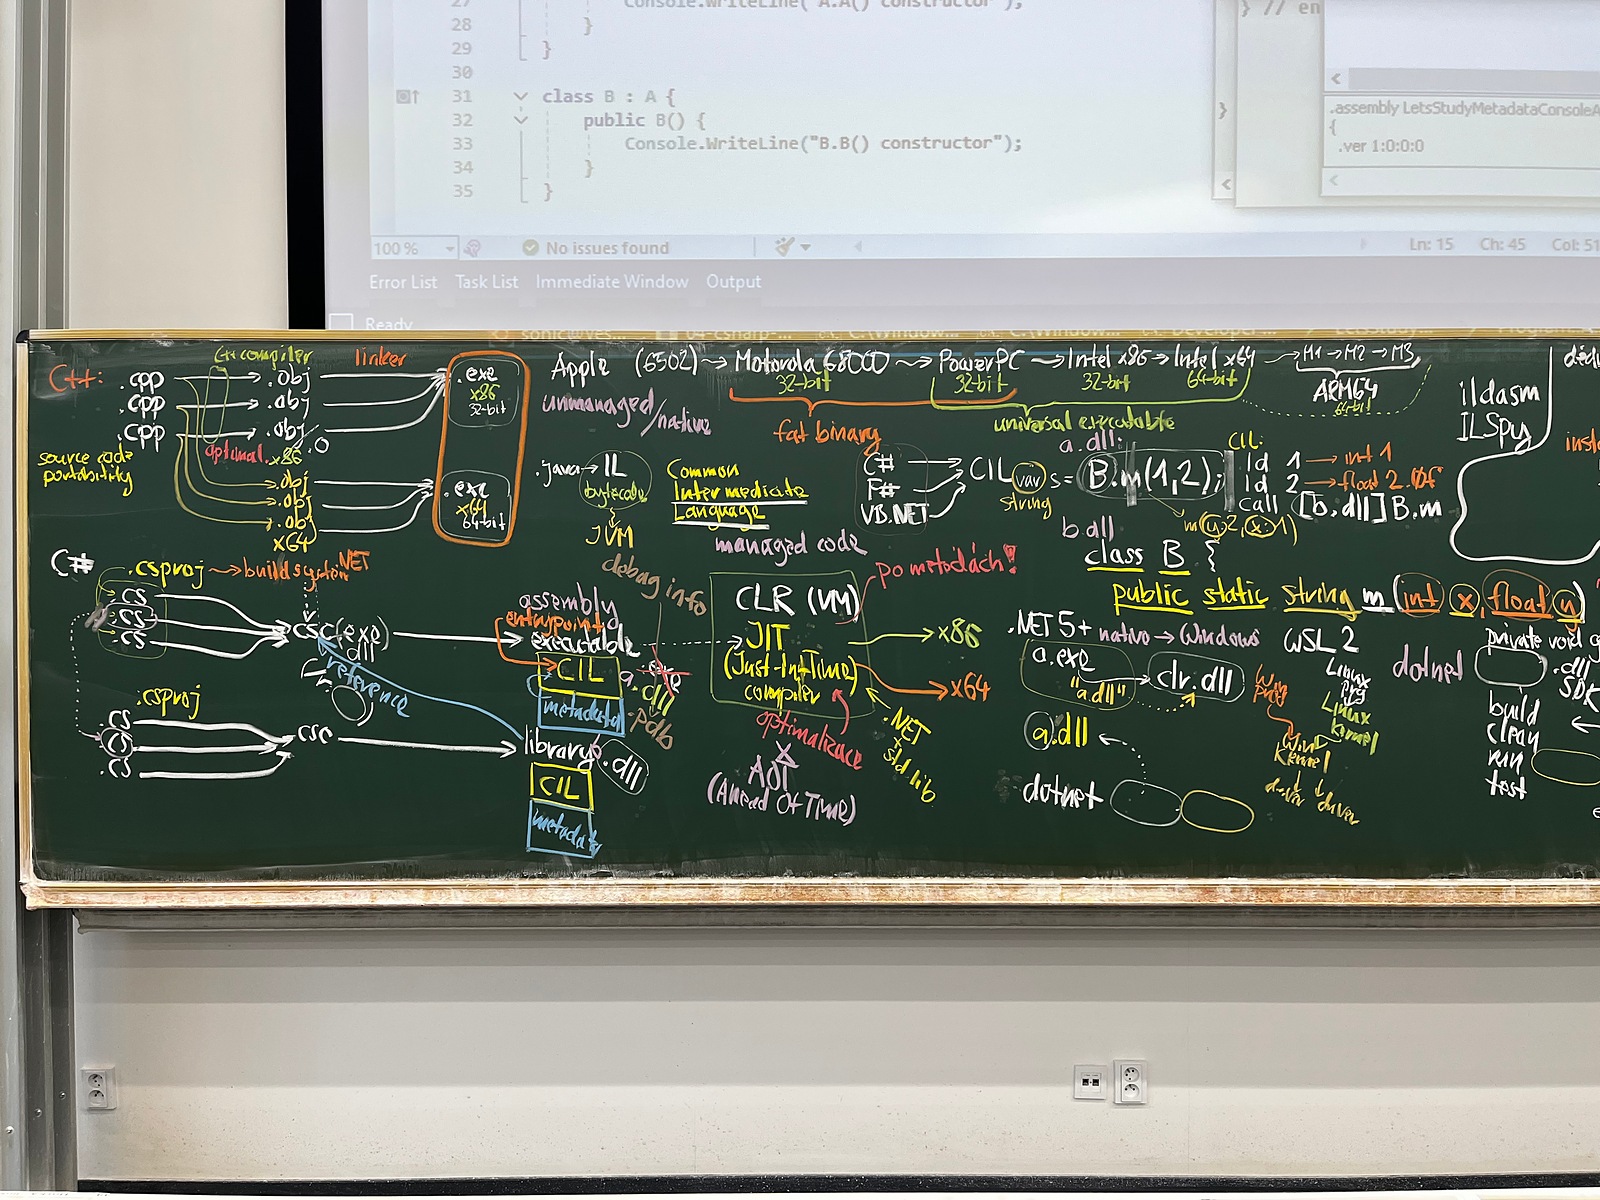 27 Console.WriteLine("A.A() constructor");
28 }
29 }
30
31 class B : A {
32 public B() {
33 Console.WriteLine("B.B() constructor");
34 }
35 }
} // en
}
.assembly LetsStudyMetadataConsoleA
{
.ver 1:0:0:0
100 % No issues found Ln: 15 Ch: 45 Col: 51
Error List Task List Immediate Window Output
Ready
C++:
C++ compiler
linker
.cpp
.cpp
.cpp
.obj
.obj
.obj
optimal.
x86
source code
portability
.obj
.obj
.obj
x64
.exe
x86
32-bit
.exe
x64
64-bit
Apple (6502) → Motorola 68000 → PowerPC → Intel x86 → Intel x64 → M1 → M2 → M3
32-bit 32-bit 32-bit 64-bit ARM64
64-bit
unmanaged/native
fat binary
universal executable
.java → IL
bytecode
JVM
Common
Intermediate
Language
managed code
C#
F#
VB.NET
CIL
a.dll:
var s = B.m(1,2);
string
CIL:
ld 1 → int 1
ld 2 → float 2.0f
call [b.dll]B.m
m(y:2, x:1)
b.dll
class B {
public static string m(int x, float y)
ildasm
ILSpy
C#
.csproj → build system .NET
cs
cs
cs
csc(exe
dll)
reference
.csproj
cs
cs
cs
csc
debug info
assembly
entrypoint
executable
CIL
metadata
a.dll
.pdb
library
.dll
CIL
metadata
CLR (VM)
JIT
(Just-In-Time)
compiler
po metodách!
optimalizace
→ x86
→ x64
.NET
std lib
AOT
(Ahead Of Time)
.NET 5+ nativo → Windows
a.exe
"a.dll"
clr.dll
a.dll
dotnet
WSL 2
Win
prg
Linux
prg
Linux
kernel
Win
kernel
driver driver
dotnet
private void
.dll
SDK
build
clean
run
test